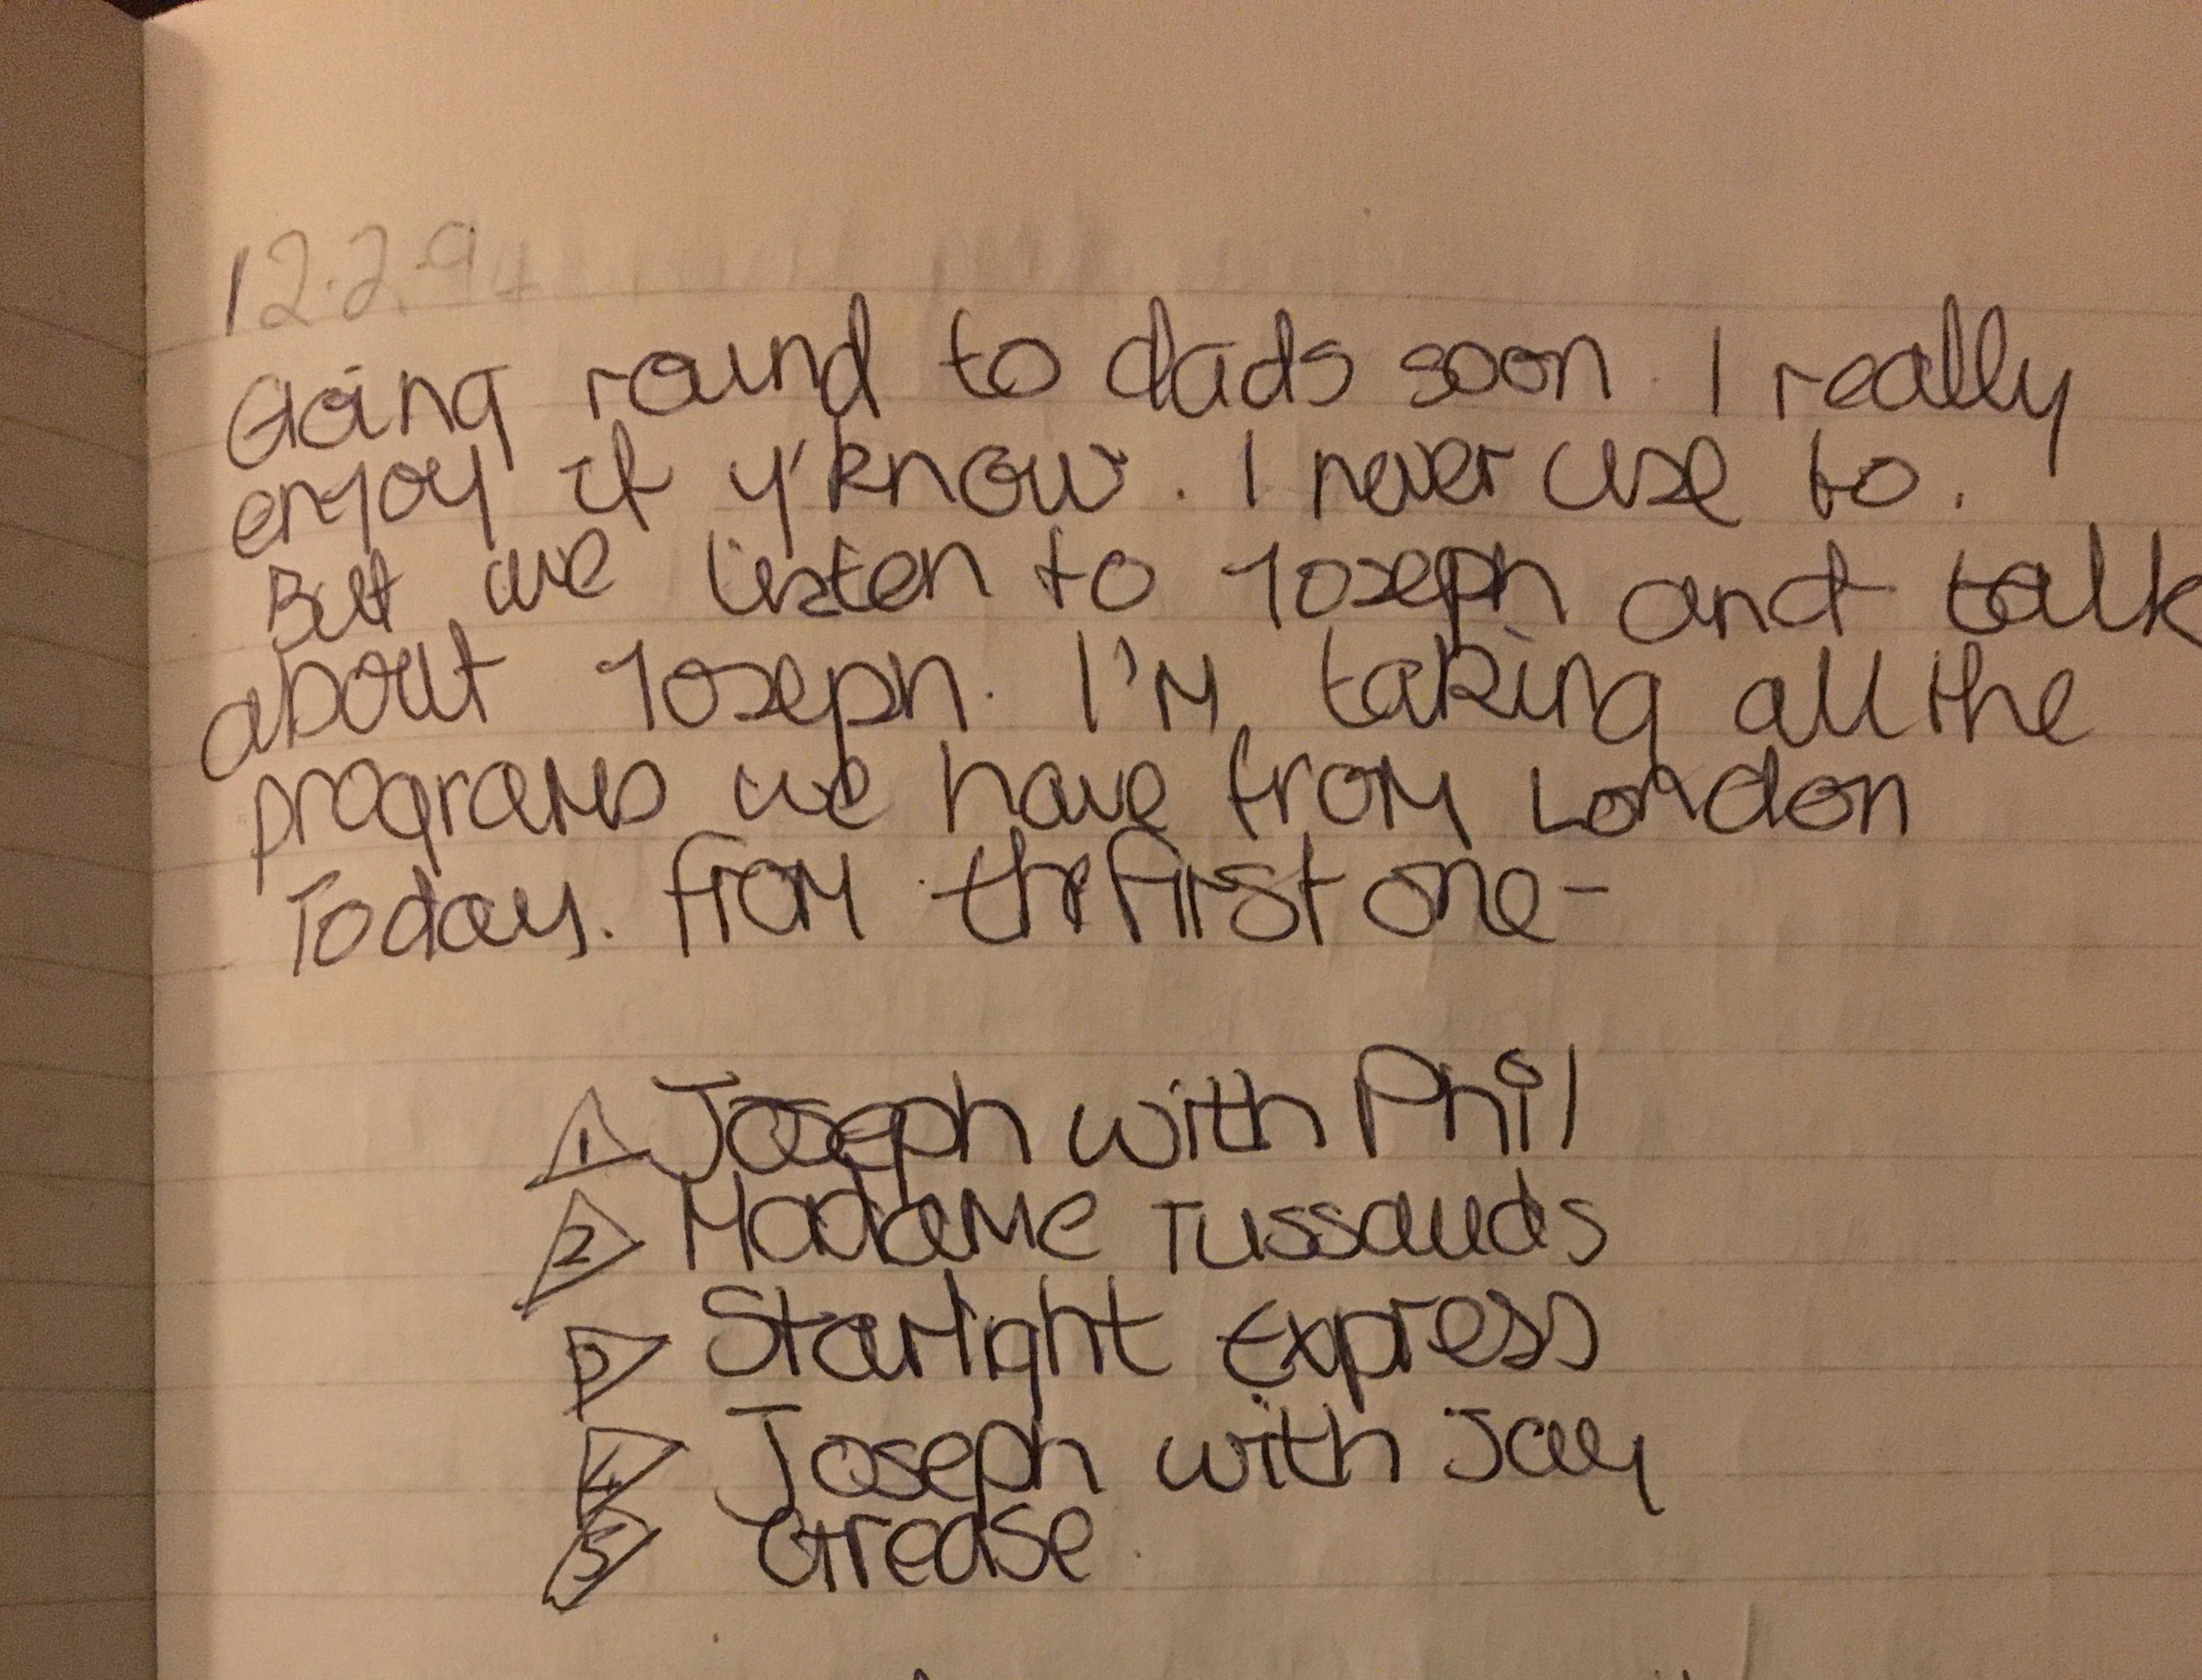 12.2.94
Going round to dads soon. I really
enjoy it y'know. I never use to.
But we listen to Joseph and talk
about Joseph. I'm taking all the
programs we have from London
Today. from the first one-
1 Joseph with Phil
2 Madame Tussauds
3 Starlight Express
4 Joseph with Jay
5 Grease